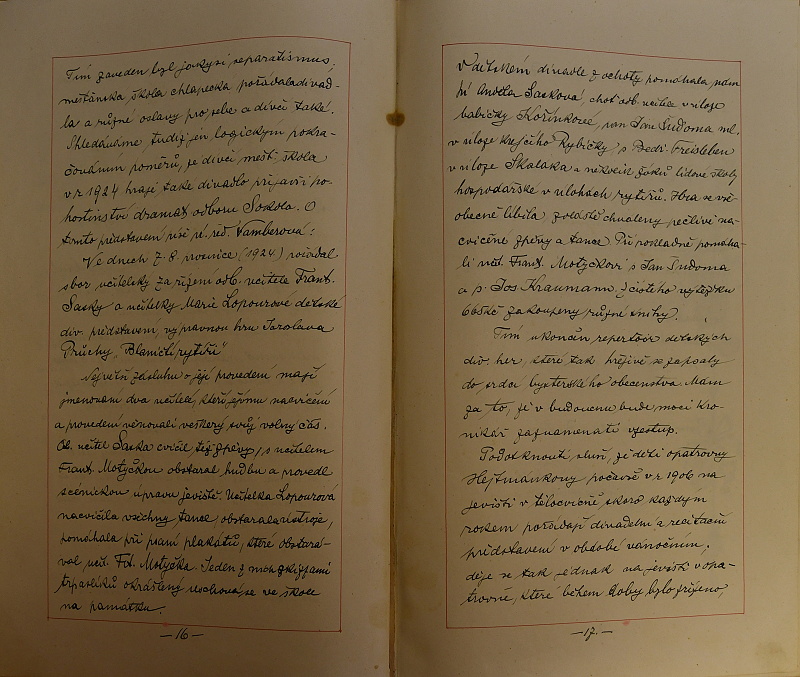 Tím zaveden byl jakýsi separatismus,
měšťánská škola chlapecká pořádala divad-
la a různé oslavy pro sebe a dívčí také.
Shledáváme tudíž jen logickým pokra-
čováním poměrů, že dívčí měšť. škola
v r. 1924 hraje také divadlo přijavši po-
hostinství dramat. odboru Sokola. O
tomto představení píše sl. řed. Vamberová:
Ve dnech 7. 8. prosince (1924) pořádal
sbor učitelský za řízení odb. učitele Frant.
Sasky a učitelky Marie Lopourové dětské
div. představení, výpravnou hru Jaroslava
Průchy „Blaničtí rytíři"
Největší zásluhu o její provedení mají
jmenovaní dva učitelé, kteří jejímu nacvičení
a provedení věnovali veškerý svůj volný čas.
Ob. učitel Saska cvičil též zpěvy, s učitelem
Frant. Motyčkou obstaral hudbu a provedl
scénickou úpravu jeviště. Učitelka Lopourová
nacvičila všechny tance, obstarala ústroje,
pomáhala při psaní plakátů, které obstará-
val učit. Fr. Motyčka. Jeden z nich skizzami
trpaslíků okrášlený uschová se ve škole
na památku.
— 16 —
V dětském divadle z ochoty pomáhala nám
pí Anděla Sasková, choť odb. učitele v úloze
babičky Kořínkové, pan Jan Sudoma ml.
v úloze krejčího Rybičky, s Bedř. Freisleben
v úloze Skaláka a několik žáků lidové školy
hospodářské v úlohách rytířů. Hra se vše-
obecně líbila zvláště chváleny pečlivě na-
cvičené zpěvy a tance. Při pokladně pomáha-
li učit. Frant. Motyčkovi s Jan Sudoma
a p. Jos. Kraumann. Z čistého výtěžku
zakoupeny různé knihy.
Tím ukončen repertoir dětských
div. her, které tak hřejivě se zapsaly
do srdcí bysterského obecenstva. Mám
za to, že v budoucnu bude moci kro-
nikář zaznamenati vzestup.
Podotknouti sluší, že děti opatrovny
Hejtmánkovy počavše v r. 1906 na
jevišti v tělocvičně skoro každým
rokem pořádají divadelní a recitační
představení v období vánočním,
děje se tak jednak na jevišti v opa-
trovně, které během doby bylo zřízeno,
— 17. —